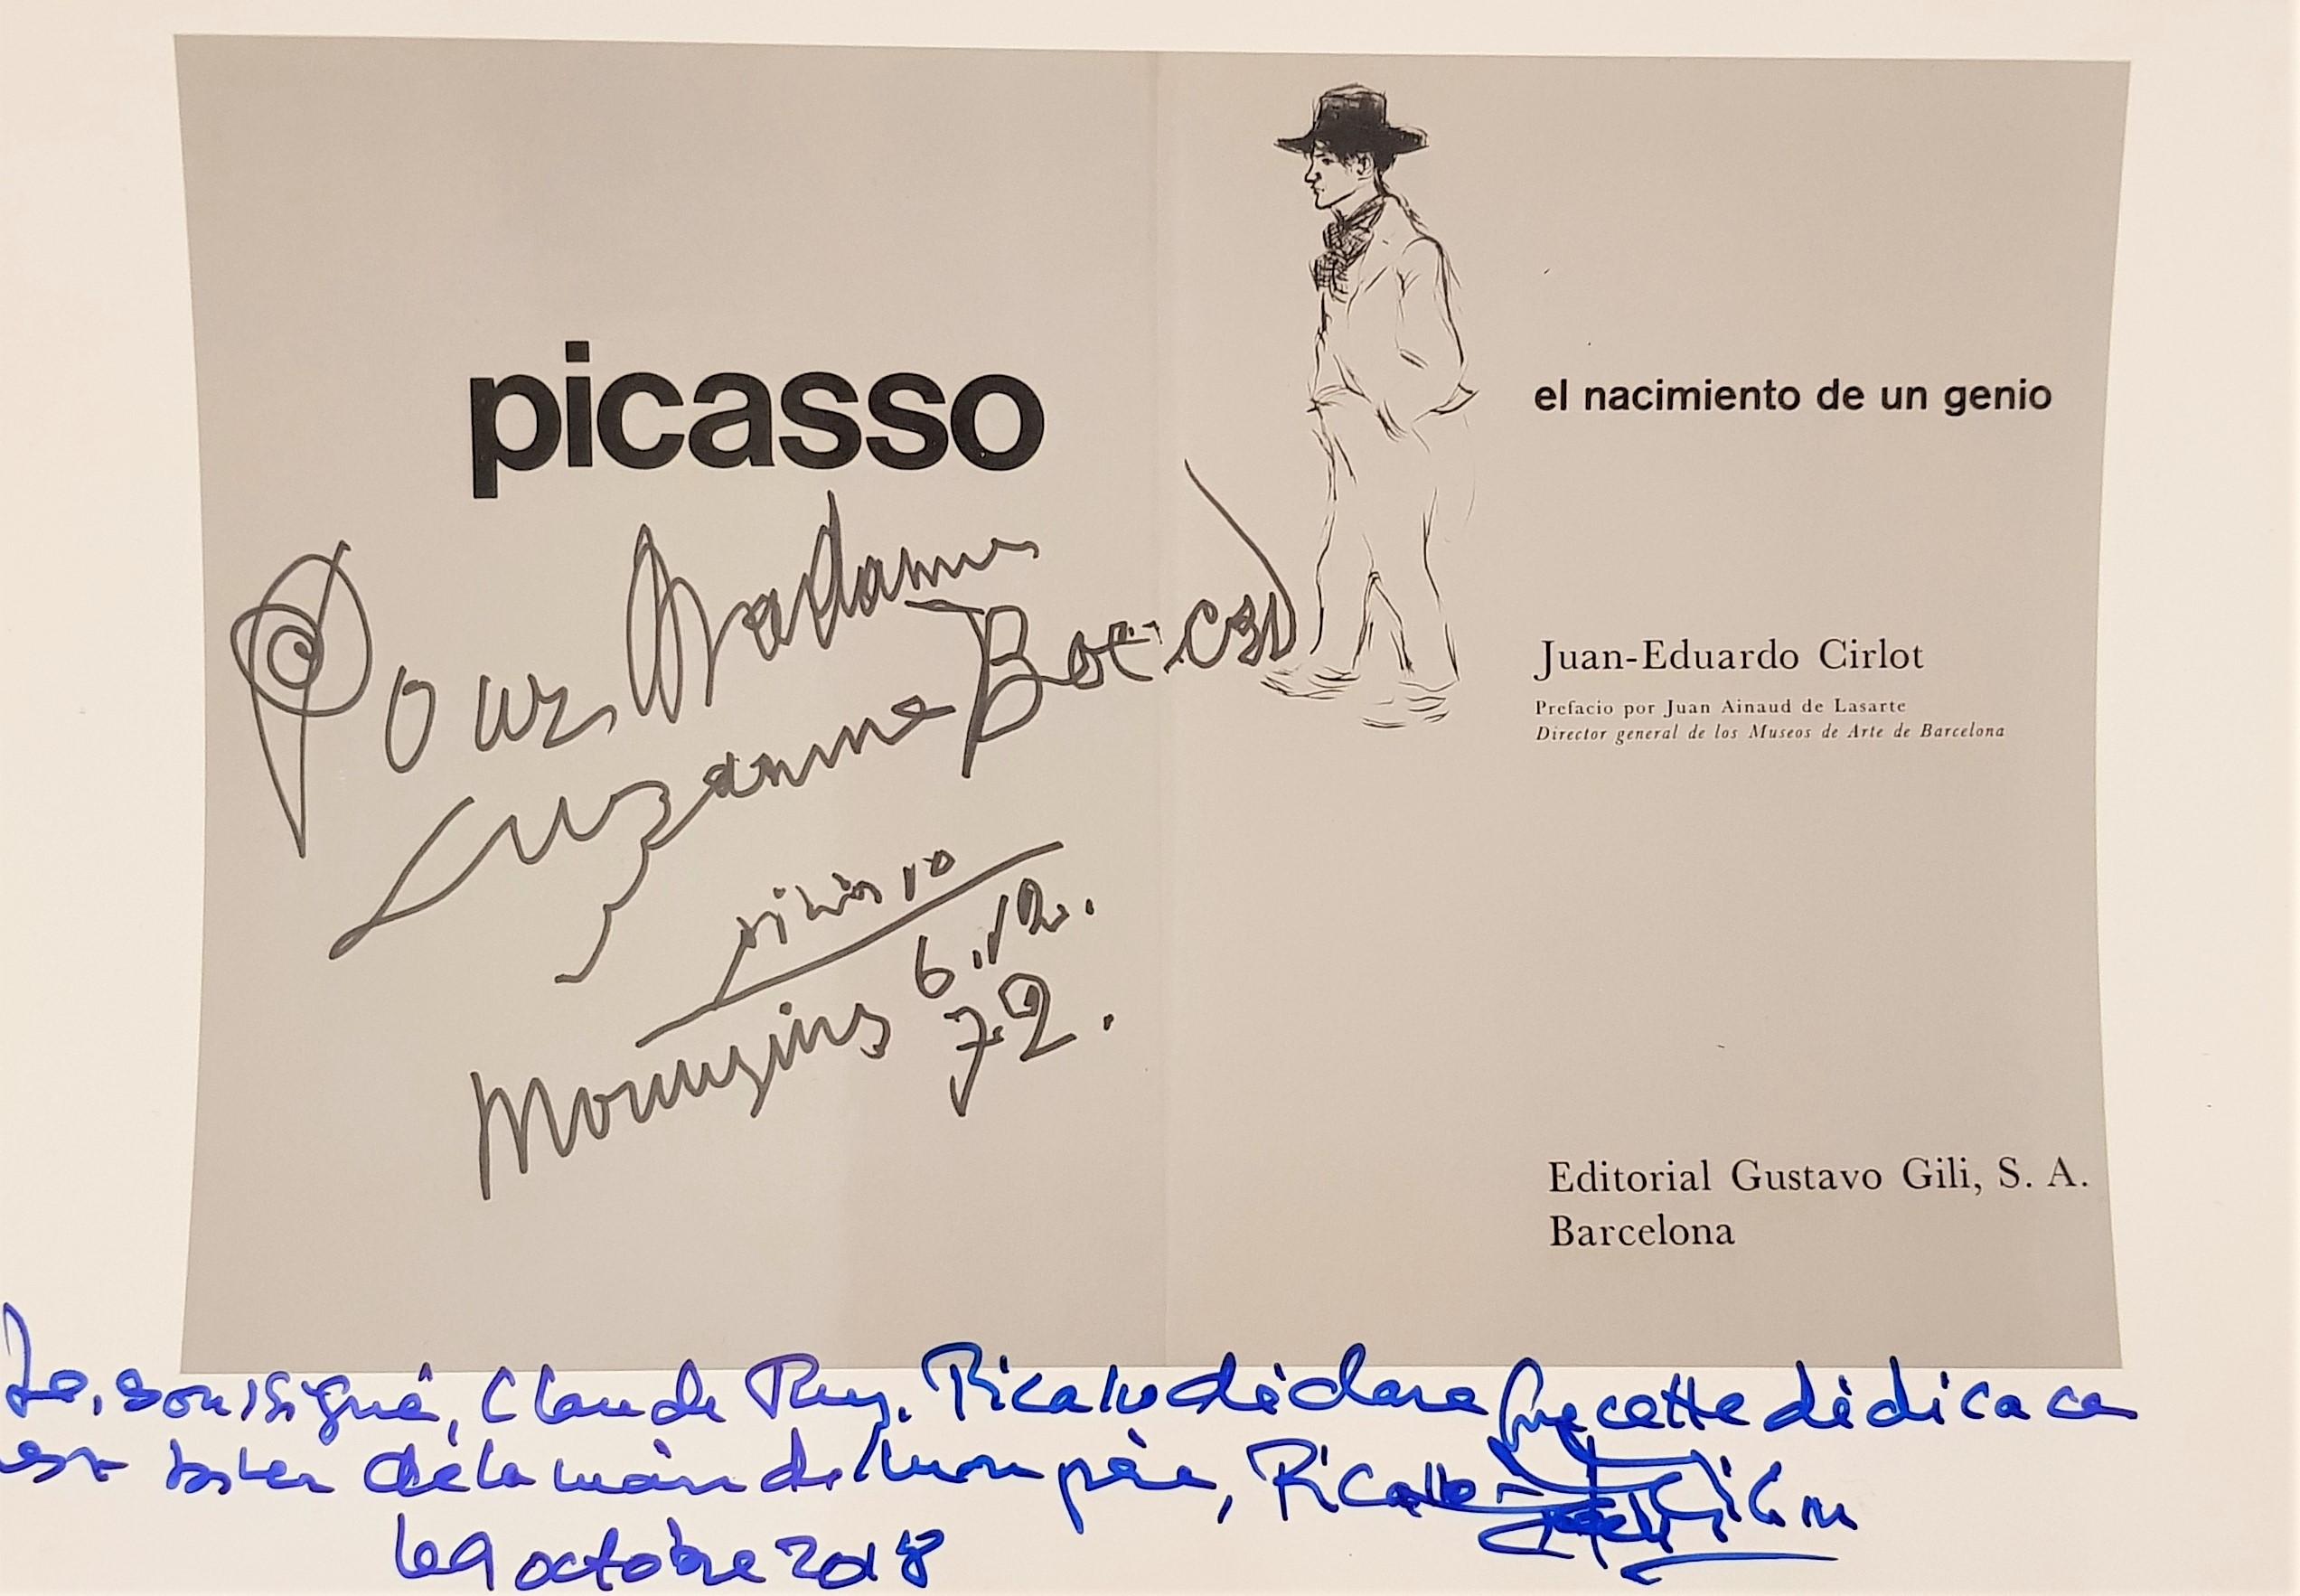 picasso
el nacimiento de un genio
Pour Madame
Suzanne
Juan-Eduardo Cirlot
Prefacio por Juan Ainaud de Lasarte
Director general de los Museos de Arte de Barcelona
picasso
Mougins 6.12.
72.
Editorial Gustavo Gili, S. A.
Barcelona
Je, soussigné, Claude Ruiz. Picasso déclare que cette dédicace
est bien de la main de mon père, Picasso
le 9 octobre 2018